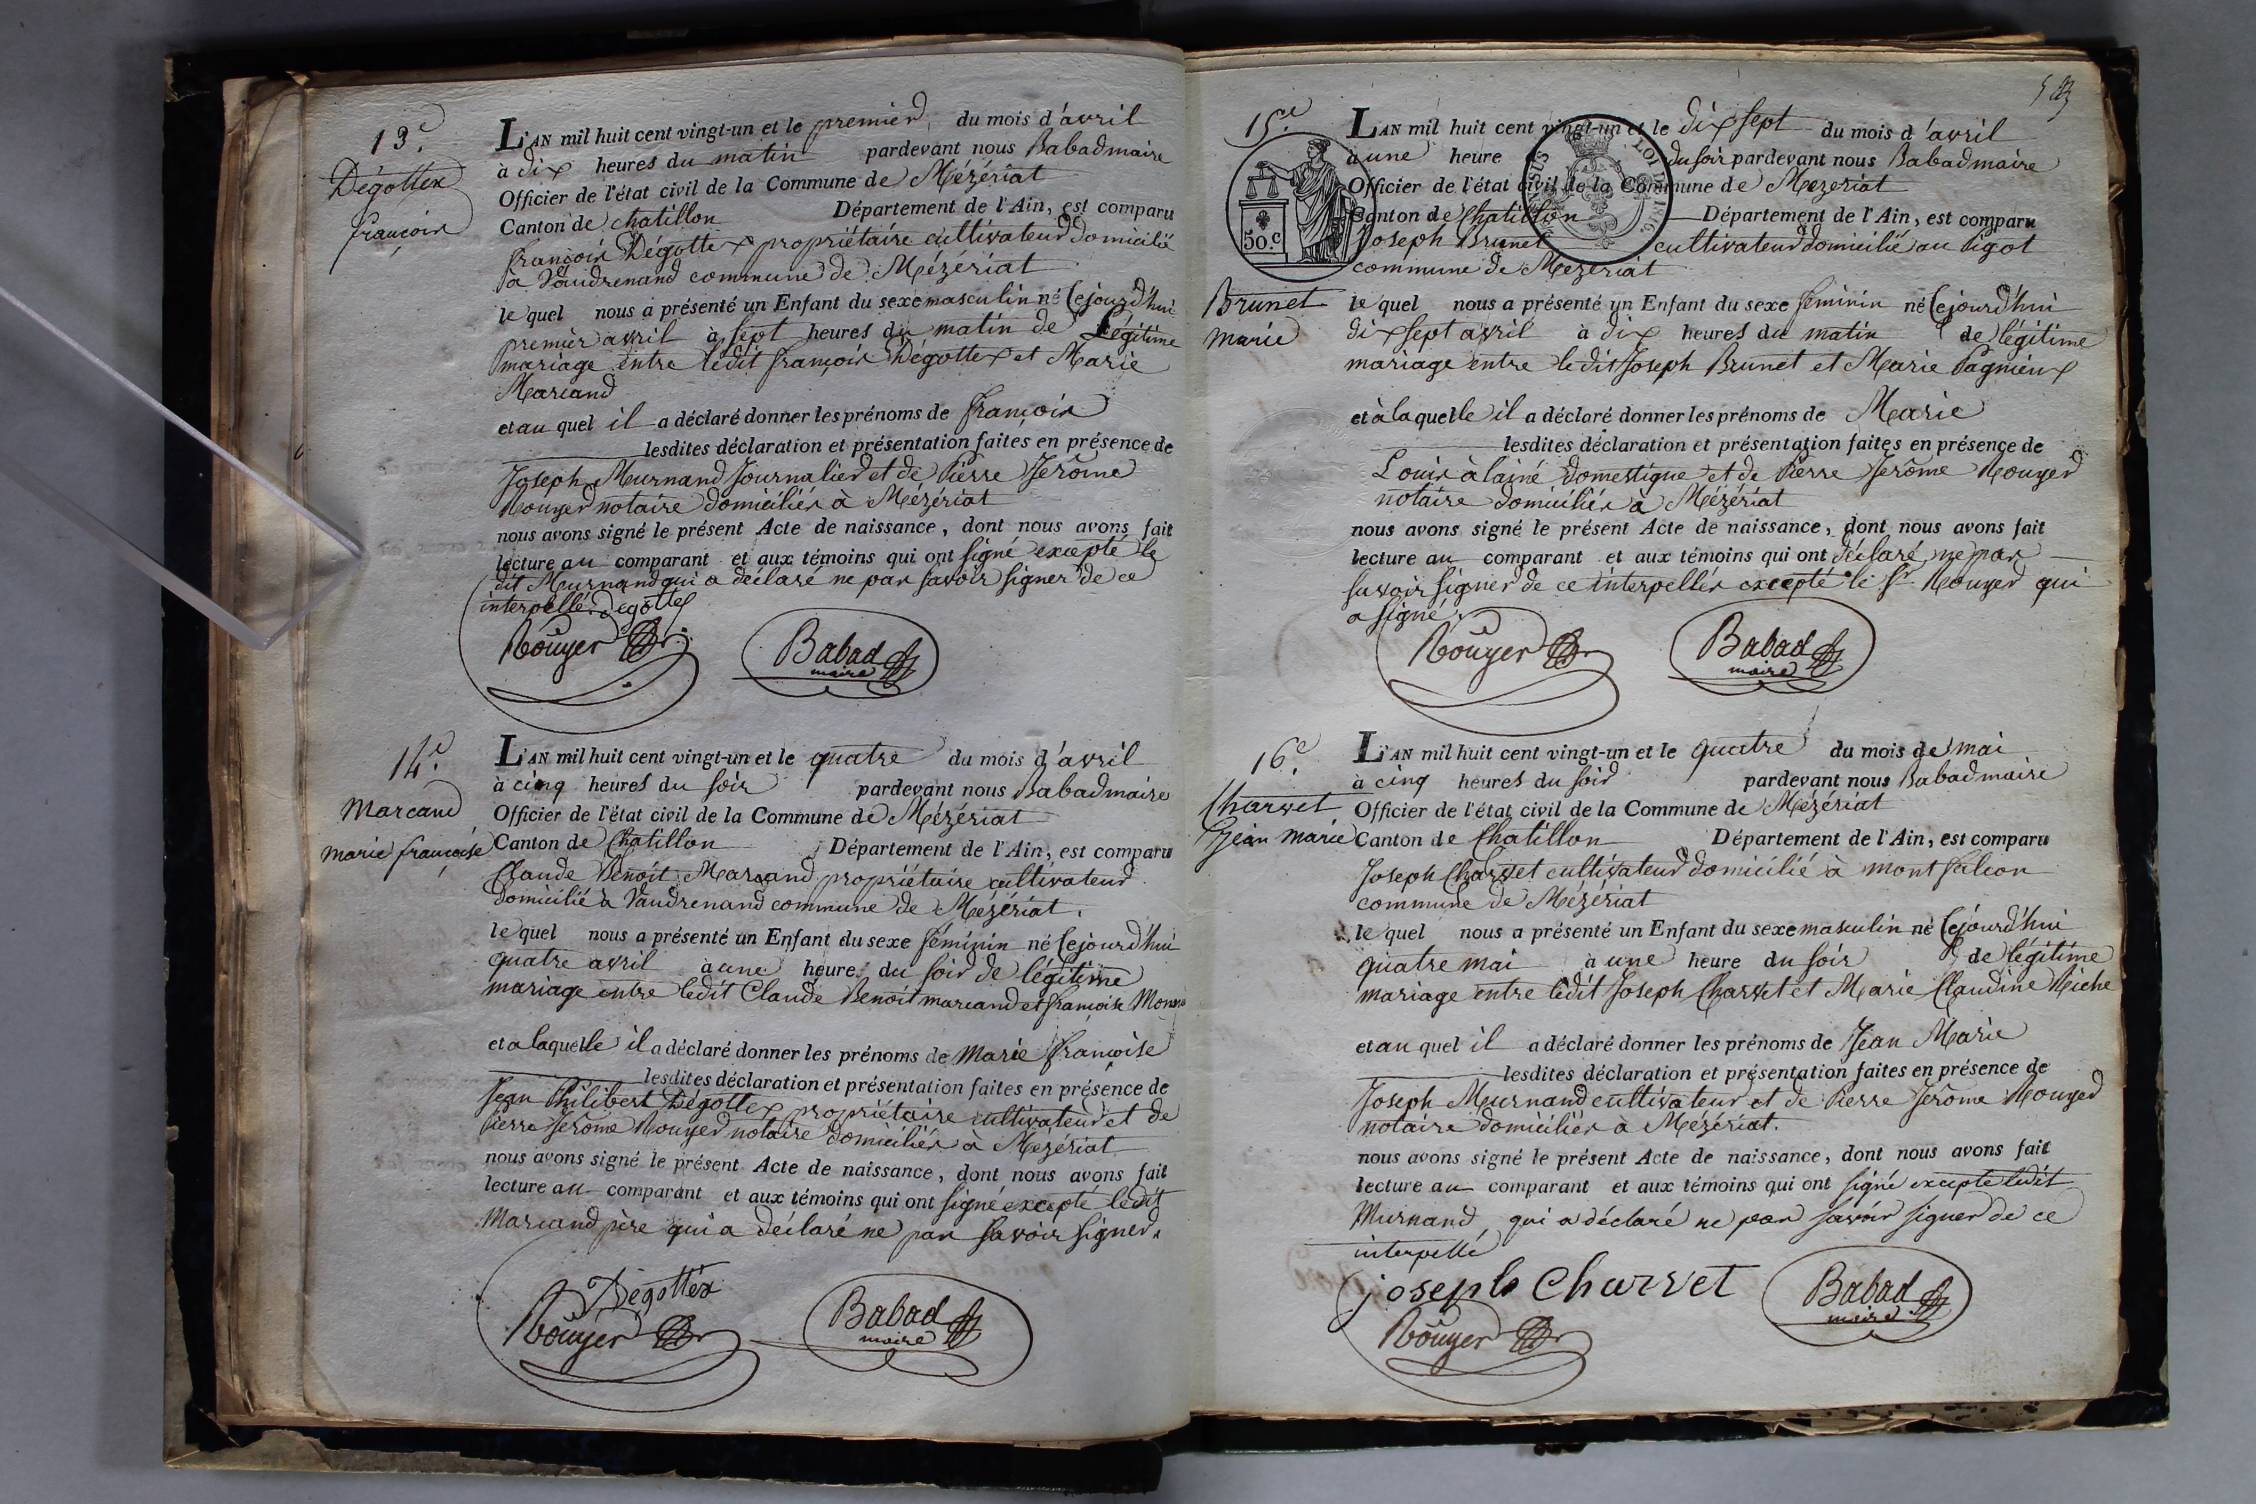 13.e
Dégottex
françois
L'AN mil huit cent vingt-un et le premier du mois d'avril
à dix heures du matin pardevant nous Babad maire
Officier de l'état civil de la Commune de Mézériat
Canton de chatillon Département de l'Ain, est comparu
françois Dégottex propriétaire cultivateur domicilié
à Vaudrenand commune de Mézériat
lequel nous a présenté un Enfant du sexe masculin né cejourd'hui
premier avril à sept heures du matin de Légitime
mariage entre ledit françois Dégottex et Marie
Marcand
et au quel il a déclaré donner les prénoms de françois
lesdites déclaration et présentation faites en présence de
Joseph Murnand Journalier et de Pierre Jerôme
Rouyer notaire domiciliés à Mézériat
nous avons signé le présent Acte de naissance, dont nous avons fait
lecture au comparant et aux témoins qui ont signé excepté le
dit Murnand qui a déclaré ne pas savoir signer de ce
interpellé. Degottex
Rouyer
Babad
maire
14.e
Marcand
marie françoise
L'AN mil huit cent vingt-un et le quatre du mois d'avril
à cinq heures du soir pardevant nous Babad maire
Officier de l'état civil de la Commune de Mézériat
Canton de Chatillon Département de l'Ain, est comparu
Claude Benoit Marcand propriétaire cultivateur
domicilié à Vaudrenand commune de Mézériat.
lequel nous a présenté un Enfant du sexe féminin né cejourd'hui
quatre avril à une heure du soir de légitime
mariage entre ledit Claude Benoit marcand et françoise
et a laquelle il a déclaré donner les prénoms de Marie françoise
lesdites déclaration et présentation faites en présence de
Jean Philibert Dégottex propriétaire cultivateur et de
Pierre Jerôme Rouyer notaire domiciliés à Mezériat
nous avons signé le présent Acte de naissance, dont nous avons fait
lecture au comparant et aux témoins qui ont signé excepté ledit
Marcand père qui a déclaré ne pas savoir signer.
Dégottex
Rouyer
Babad
maire
15.e
50.c
LOI DE 1816.
Brunet
marie
L'AN mil huit cent vingt-un et le dix sept du mois d'avril
à une heure du soir pardevant nous Babad maire
Officier de l'état civil de la Commune de Mezeriat
Canton de Chatillon Département de l'Ain, est comparu
Joseph Brunet cultivateur domicilié au Pigot
commune de Mezériat
lequel nous a présenté un Enfant du sexe féminin né cejourd'hui
dix sept avril à dix heures du matin de légitime
mariage entre ledit Joseph Brunet et Marie Pagnieux
et à laquelle il a déclaré donner les prénoms de Marie
lesdites déclaration et présentation faites en présence de
Louis à lainé domestique et de Pierre Jerôme Rouyer
notaire domiciliés à Mézériat
nous avons signé le présent Acte de naissance, dont nous avons fait
lecture au comparant et aux témoins qui ont déclaré ne pas
savoir signer de ce interpellés excepté le Sr. Rouyer qui
a signé.
Rouyer
Babad
maire
16.e
Charvet
Jean Marie
L'AN mil huit cent vingt-un et le quatre du mois de mai
à cinq heures du soir pardevant nous Babad maire
Officier de l'état civil de la Commune de Mézériat
Canton de Chatillon Département de l'Ain, est comparu
Joseph Charvet cultivateur domicilié à mont falcon
commune de Mézériat
lequel nous a présenté un Enfant du sexe masculin né cejourd'hui
quatre mai à une heure du soir de légitime
mariage entre ledit Joseph Charvet et Marie Claudine Riche
et au quel il a déclaré donner les prénoms de Jean Marie
lesdites déclaration et présentation faites en présence de
Joseph Murnand cultivateur et de Pierre Jerôme Rouyer
notaire domiciliés à Mézériat.
nous avons signé le présent Acte de naissance, dont nous avons fait
lecture au comparant et aux témoins qui ont signé excepté ledit
Murnand qui a déclaré ne pas savoir signer de ce
interpellé
joseph Charvet
Rouyer
Babad
maire